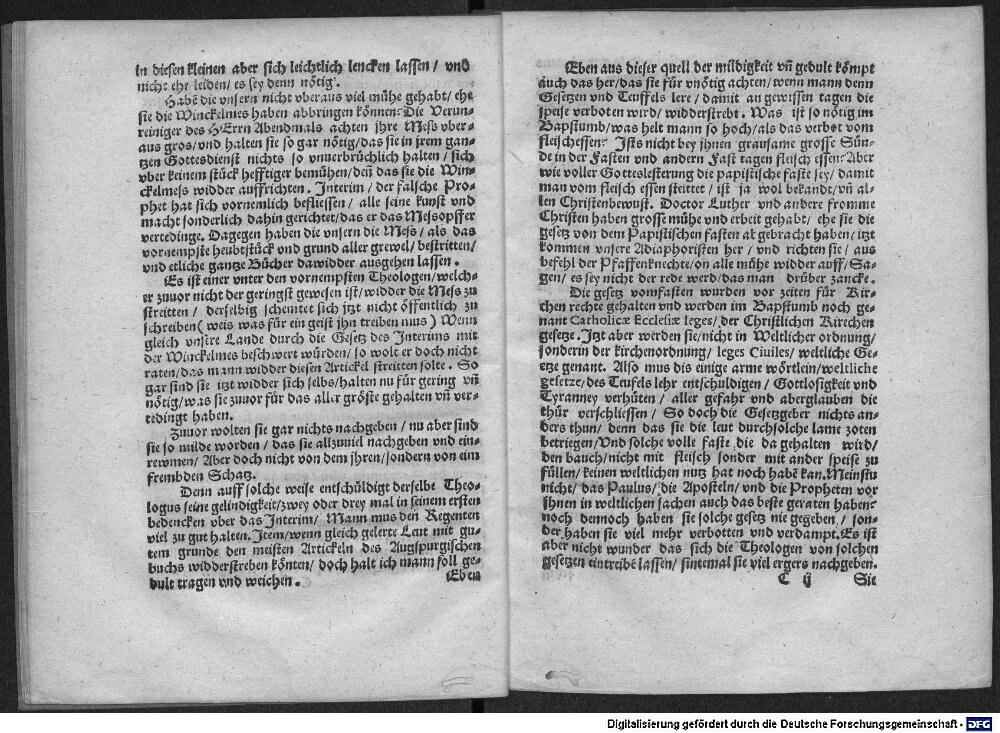 in diesen kleinen aber sich leichtlich lencken lassen / vnd
nicht ehe leiden / es sey denn nötig.
Habē die vnsern nicht vberaus viel mühe gehabt / ehe
sie die Winckelmes haben abbringen können: Die Verun-
reiniger des HErrn Abendmals achten jhre Mess vber-
aus gros / vnd halten sie so gar nötig / das sie in jrem gan-
tzen Gottesdienst nichts so vnuerbrüchlich halten / sich
vber keinem stück hefftiger bemühen / deñ das sie die Win-
ckelmess widder auffrichten. Interim / der falsche Pro-
phet hat sich vornemlich beflissen / alle seine kunst vnd
macht sonderlich dahin gerichtet / das er das Mesopffer
vertedinge. Dagegen haben die vnsern die Mess / als das
vornempste heubtstück vnd grund aller grewel / bestritten /
vnd etliche gantze Bücher dawidder ausgehen lassen.
Es ist einer vnter den vornempsten Theologen / welch-
er zuuor nicht der geringst gewesen ist / widder die Mess zu
streitten / derselbig schemtet sich jtzt nicht öffentlich zu
schreiben ( weis was für ein geist jhn treiben mus ) Wenn
gleich vnsere Lande durch die Gesetz des Interims mit
der Winckelmes beschwert würden / so wolt er doch nicht
raten / das mann widder diesen Artickel streitten solte. So
gar sind sie itzt widder sich selbs / halten nu für gering vñ
nötig / was sie zuuor für das aller gröste gehalten vñ ver-
tedingt haben.
Zuuor wolten sie gar nichts nachgeben / nu aber sind
sie so milde worden / das sie allzuuiel nachgeben vnd ein-
rewmen / Aber doch nicht von dem jhren / sondern von eim
frembden Schatz.
Denn auff solche weise entschüldigt derselbe Theo-
logus seine gelindigkeit / zwey oder drey mal in seinem ersten
bedencken vber das Interim / Mann mus den Regenten
viel zu gut halten. Item / wenn gleich gelerte Leut mit gu-
tem grunde den meisten Artickeln des Augspurgischen
buchs widderstreben könten / doch halt ich mann soll ge-
dult tragen vnd weichen.
Eben
Eben aus dieser quell der mildigkeit vñ gedult kömpt
auch das her / das sie für vnötig achten / wenn mann denn
Gesetzen vnd Teuffels lere / damit an gewissen tagen die
speise verboten wird / widderstrebt. Was ist so nötig im
Bapstumb / was helt mann so hoch / als das verbot vom
fleischessen: Ists nicht bey jhnen grausame grosse Sün-
de in der Fasten vnd andern Fast tagen fleisch essen: Aber
wie voller Gotteslesterung die papistische faste sey / damit
man vom fleisch essen steittet / ist ja wol bekandt / vñ al-
len Christenbewust. Doctor Luther vnd andere fromme
Christen haben grosse mühe vnd erbeit gehabt / ehe sie die
gesetz von dem Papistischen fasten abgebracht haben / itzt
kommen vnsere Adiaphoristen her / vnd richten sie / aus
befehl der Pfaffenknechte / on alle mühe widder auff / Sa-
gen / es sey nicht der rede werd / das man drüber zancke.
Die gesetz vomfasten wurden vor zeiten für Kir-
chen rechte gehalten vnd werden im Bapstumb noch ge-
nant Catholicæ Ecclesiæ leges / der Christlichen Kirechen
gesetze. Itzt aber werden sie / nicht in Weltlicher ordnung /
sonderin der kirchenordnung / leges Ciuiles / weltliche Ge-
etze genant. Also mus dis einige arme wörtlein / weltliche
gesetze / des Teufels lehr entschuldigen / Gottlosigkeit vnd
Tyranney verhüten / aller gefahr vnd aberglauben die
thür verschliessen / So doch die Gesetzgeber nichts an-
ders thun / denn das sie die leut durchsolche lame zoten
betriegen / Vnd solche volle faste die da gehalten wird /
den bauch / nicht mit fleisch sonder mit ander speise zu
füllen / keinen weltlichen nutz hat noch habē kan. Meinstu
nicht / das Paulus / die Aposteln / vnd die Propheten vor
jhnen in weltlichen sachen auch das beste geraten haben:
noch dennoch haben sie solche gesetz nie gegeben / son-
der haben sie viel mehr verbotten vnd verdampt. Es ist
aber nicht wunder das sich die Theologen von solchen
gesetzen eintreibē lassen / sintemal sie viel ergers nachgeben.
C ij Sie
Digitalisierung gefördert durch die Deutsche Forschungsgemeinschaft - DFG